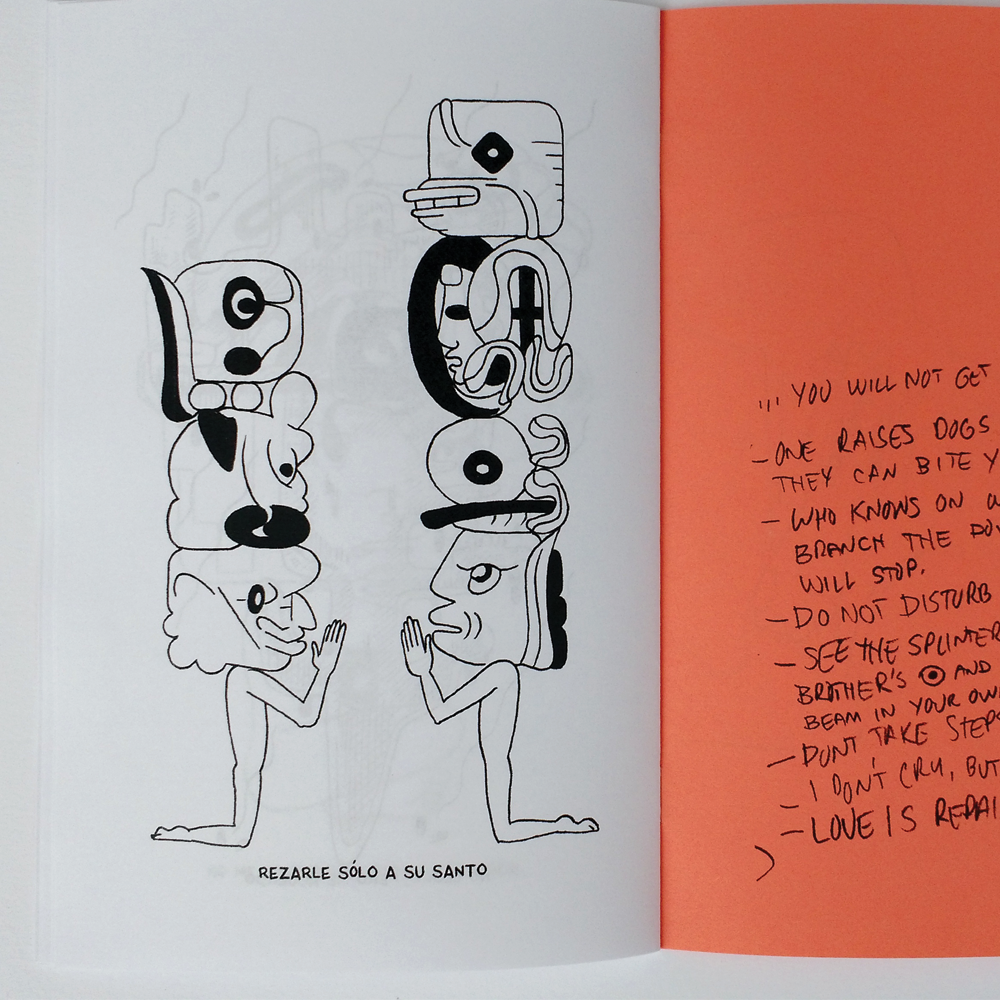 REZARLE SÓLO A SU SANTO
,,, YOU WILL NOT GET
– ONE RAISES DOGS
THEY CAN BITE Y
– WHO KNOWS ON W
BRANCH THE DOV
WILL STOP.
– DO NOT DISTURB
– SEE THE SPLINTER
BROTHER'S 👁 AND
BEAM IN YOUR OWN
– DONT TAKE STEPS
– I DON'T CRY, BUT
– LOVE IS REPAI
)